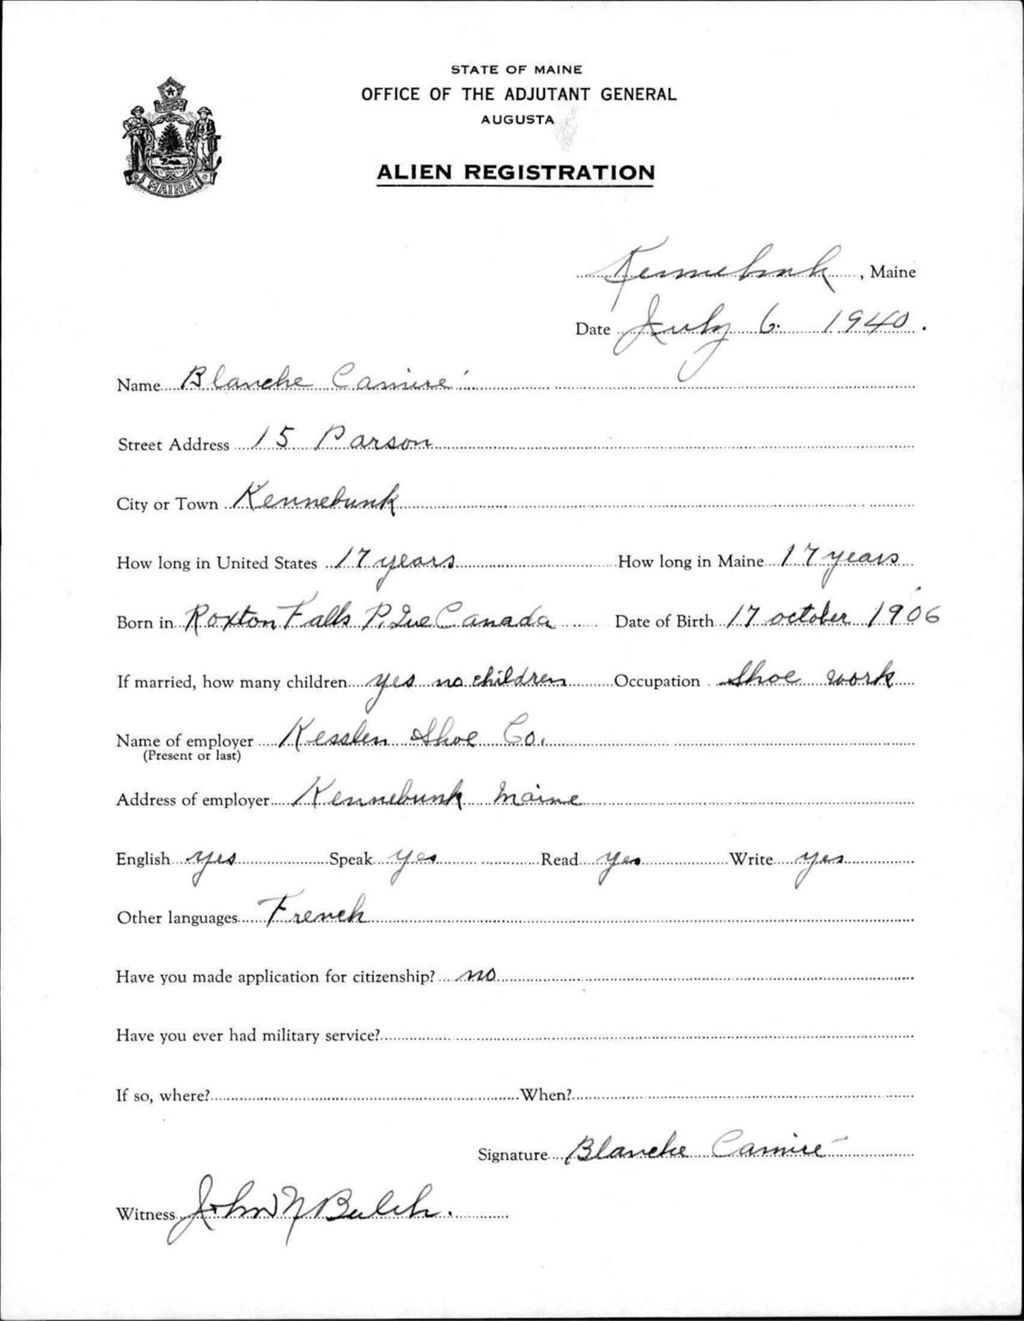 STATE OF MAINE
OFFICE OF THE ADJUTANT GENERAL
AUGUSTA
ALIEN REGISTRATION
MAINE
Kennebunk, Maine
Date July 6. 1940.
Name Blanche Camiré
Street Address 15 Parson
City or Town Kennebunk
How long in United States 17 years How long in Maine 17 years
Born in Roxton Falls P. Que Canada Date of Birth 17 october 1906
If married, how many children yes no children Occupation Shoe work
Name of employer Kesslen Shoe Co.
(Present or last)
Address of employer Kennebunk Maine
English yes Speak yes Read yes Write yes
Other languages French
Have you made application for citizenship? no
Have you ever had military service?
If so, where? When?
Signature Blanche Camiré
Witness John N